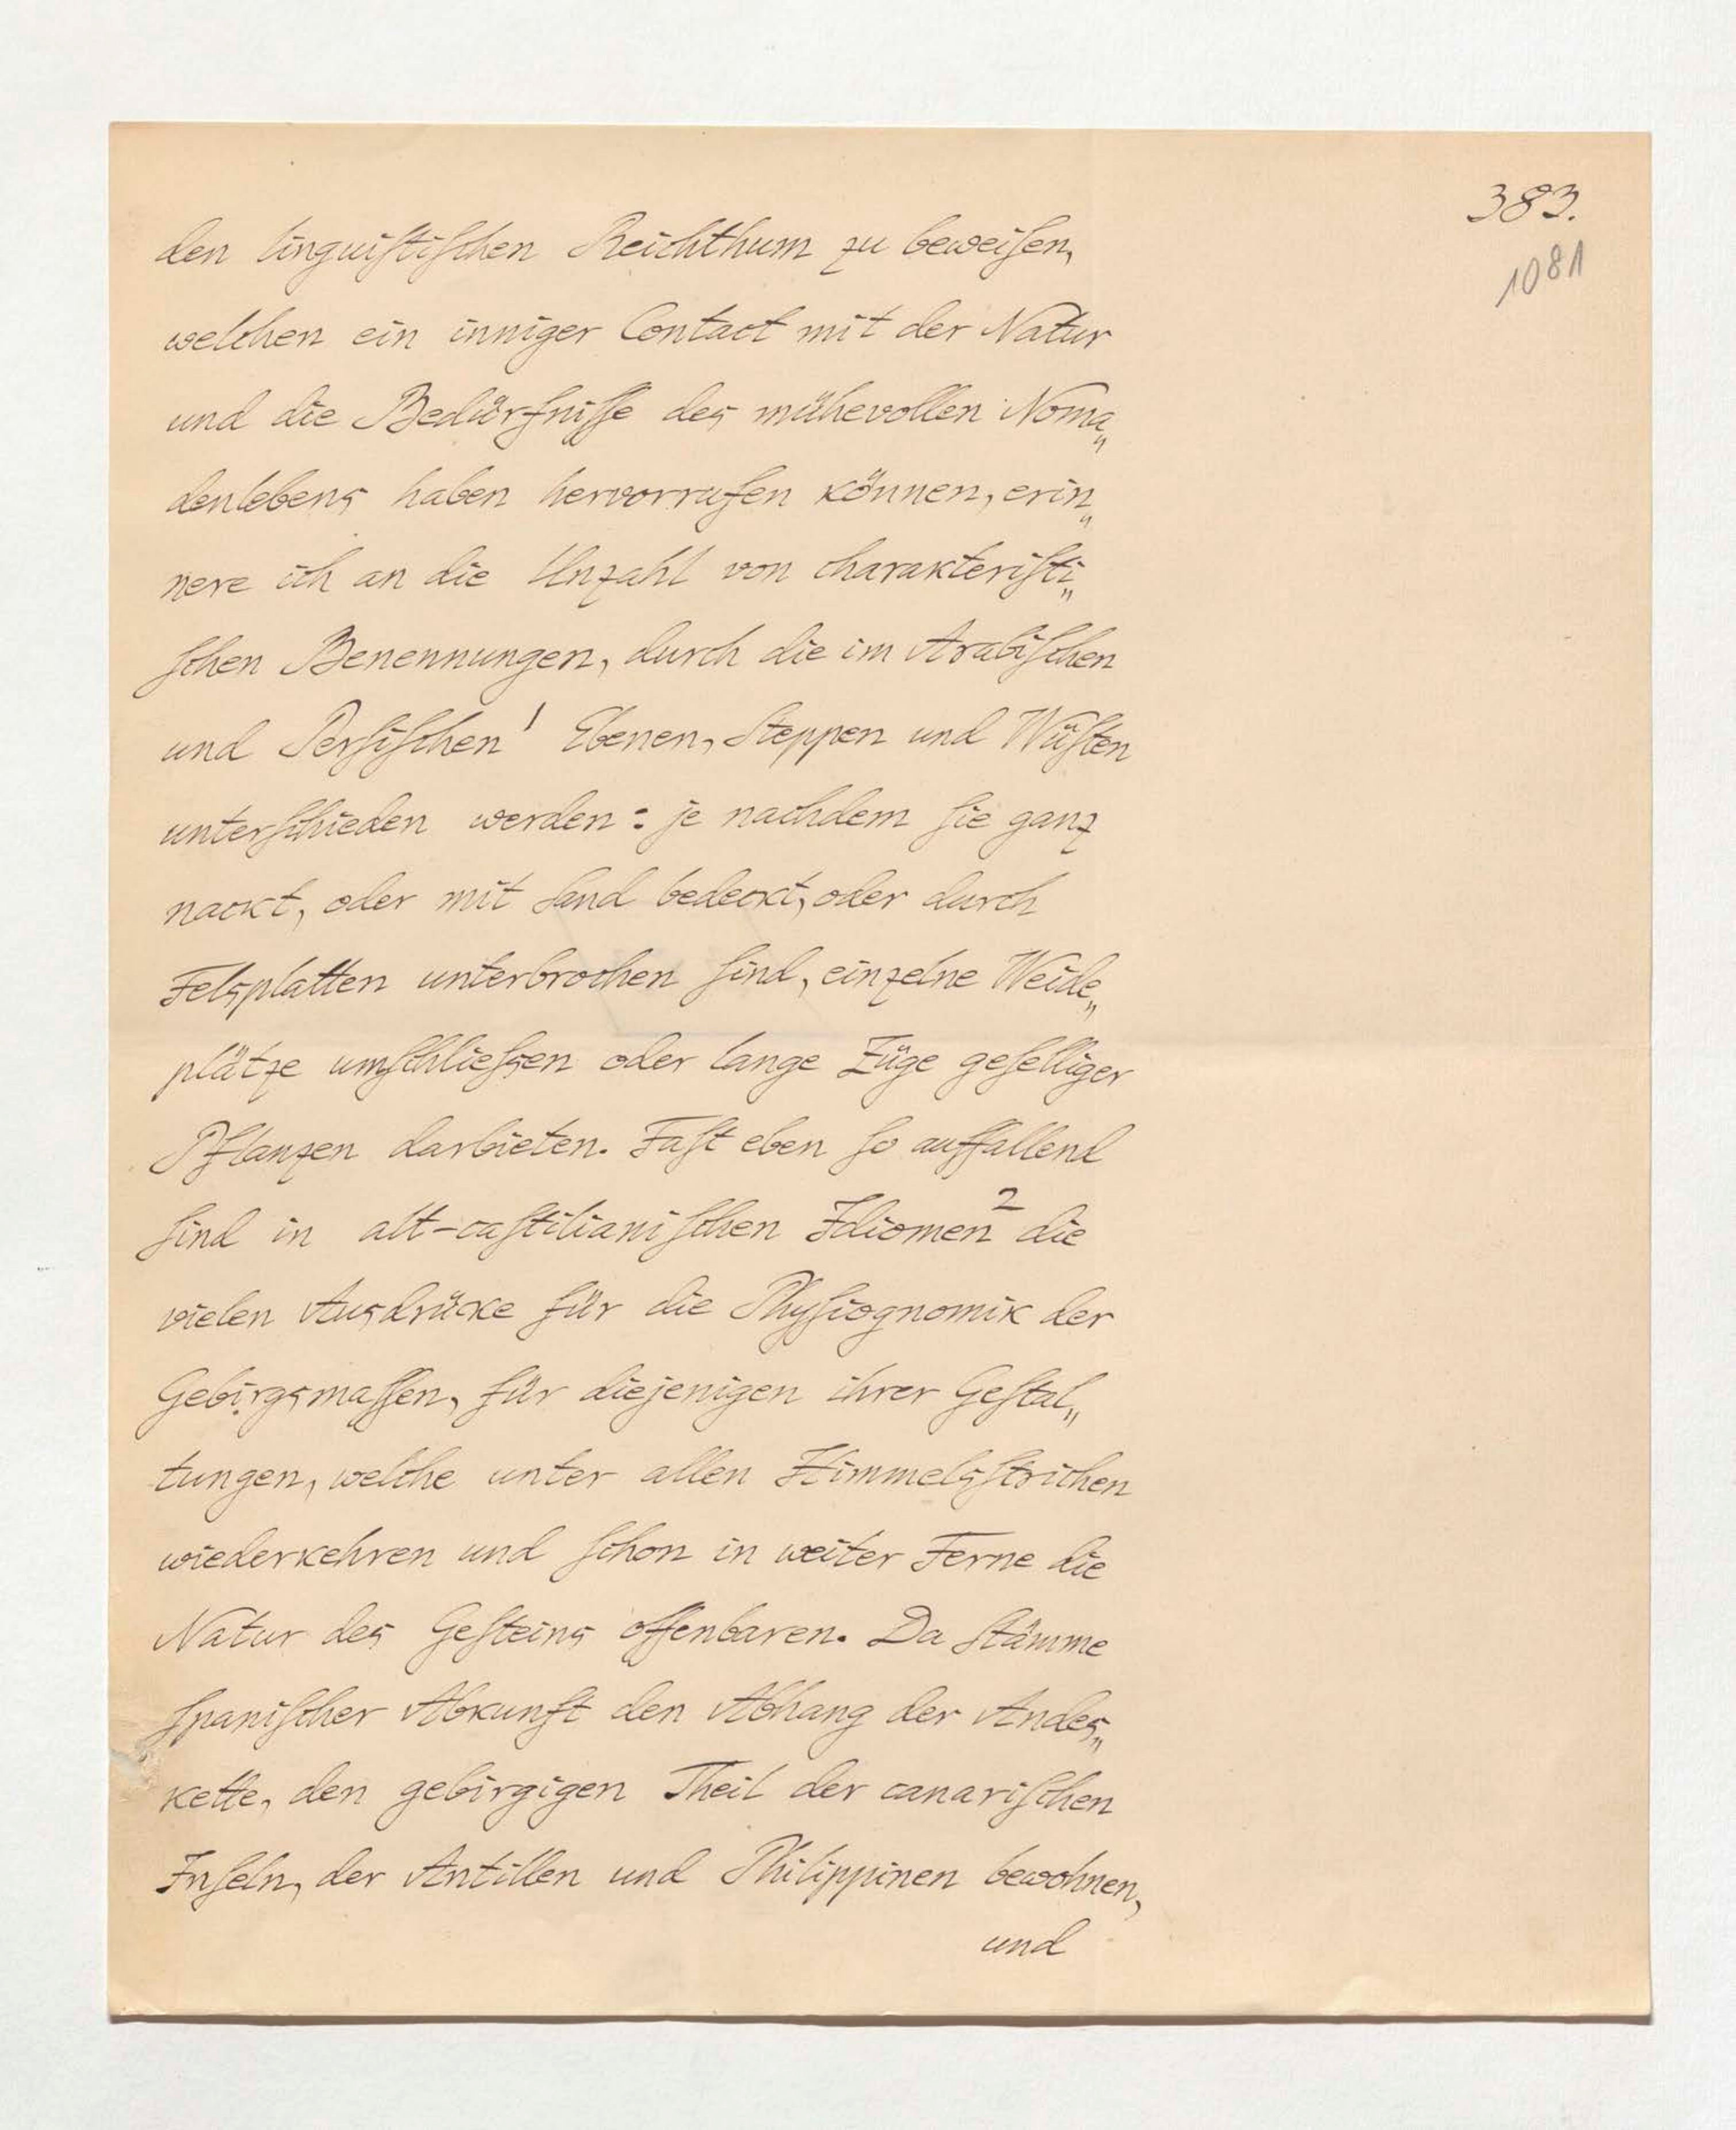 383.
1081
den linguiſtiſchen Reichthum zu beweiſen,
welchen ein inniger Contact mit der Natur
und die Bedürfniſſe des mühevollen Noma„
denlebens haben hervorrufen können, erin„
nere ich an die Unzahl von charakteriſti„
ſchen Benennungen, durch die im Arabiſchen
und Perſiſchen¹ Ebenen, Steppen und Wüſten
unterſchieden werden: je nachdem ſie ganz
nackt, oder mit Sand bedeckt, oder durch
Felsplatten unterbrochen ſind, einzelne Weide„
plätze umſchlieſsen oder lange Züge geſelliger
Pflanzen darbieten. Faſt eben ſo auffallend
ſind in alt-caſtilianiſchen Idiomen² die
vielen Ausdrücke für die Phyſiognomik der
Gebirgsmaſſen, für diejenigen ihrer Geſtal„
tungen, welche unter allen Himmelsſtrichen
wiederkehren und ſchon in weiter Ferne die
Natur des Geſteins offenbaren. Da Stämme
ſpaniſcher Abkunft den Abhang der Andes„
kette, den gebirgigen Theil der canariſchen
Inſeln, der Antillen und Philippinen bewohnen,
und